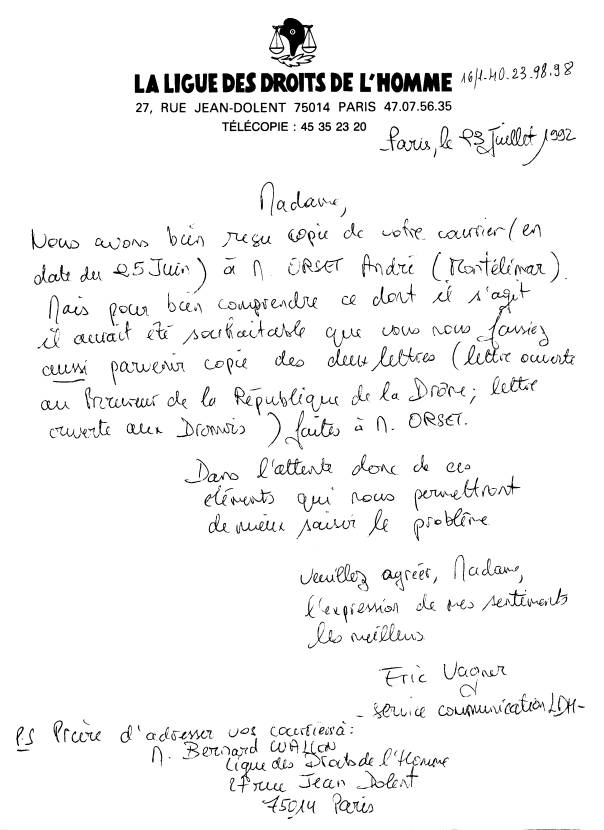 LA LIGUE DES DROITS DE L'HOMME 16/1.40.23.98.98
27, RUE JEAN-DOLENT 75014 PARIS 47.07.56.35
TÉLÉCOPIE : 45 35 23 20
Paris, le 23 Juillet 1992
Madame,
Nous avons bien reçu copie de votre courrier (en
date du 25 Juin) à M. ORSET André (Montélimar).
Mais pour bien comprendre ce dont il s'agit
il aurait été souhaitable que vous nous fassiez
aussi parvenir copie des deux lettres (lettre ouverte
au Procureur de la République de la Drôme; lettre
ouverte aux Dromois) faites à M. ORSET.
Dans l'attente donc de ces
éléments qui nous permettront
de mieux saisir le problème
Veuillez agréer, Madame,
l'expression de mes sentiments
les meilleurs
Eric Vagner
- service communication LDH -
PS Prière d'adresser vos courriers à :
M. Bernard WALLON
Ligue des Droits de l'Homme
27 rue Jean Dolent
75014 Paris